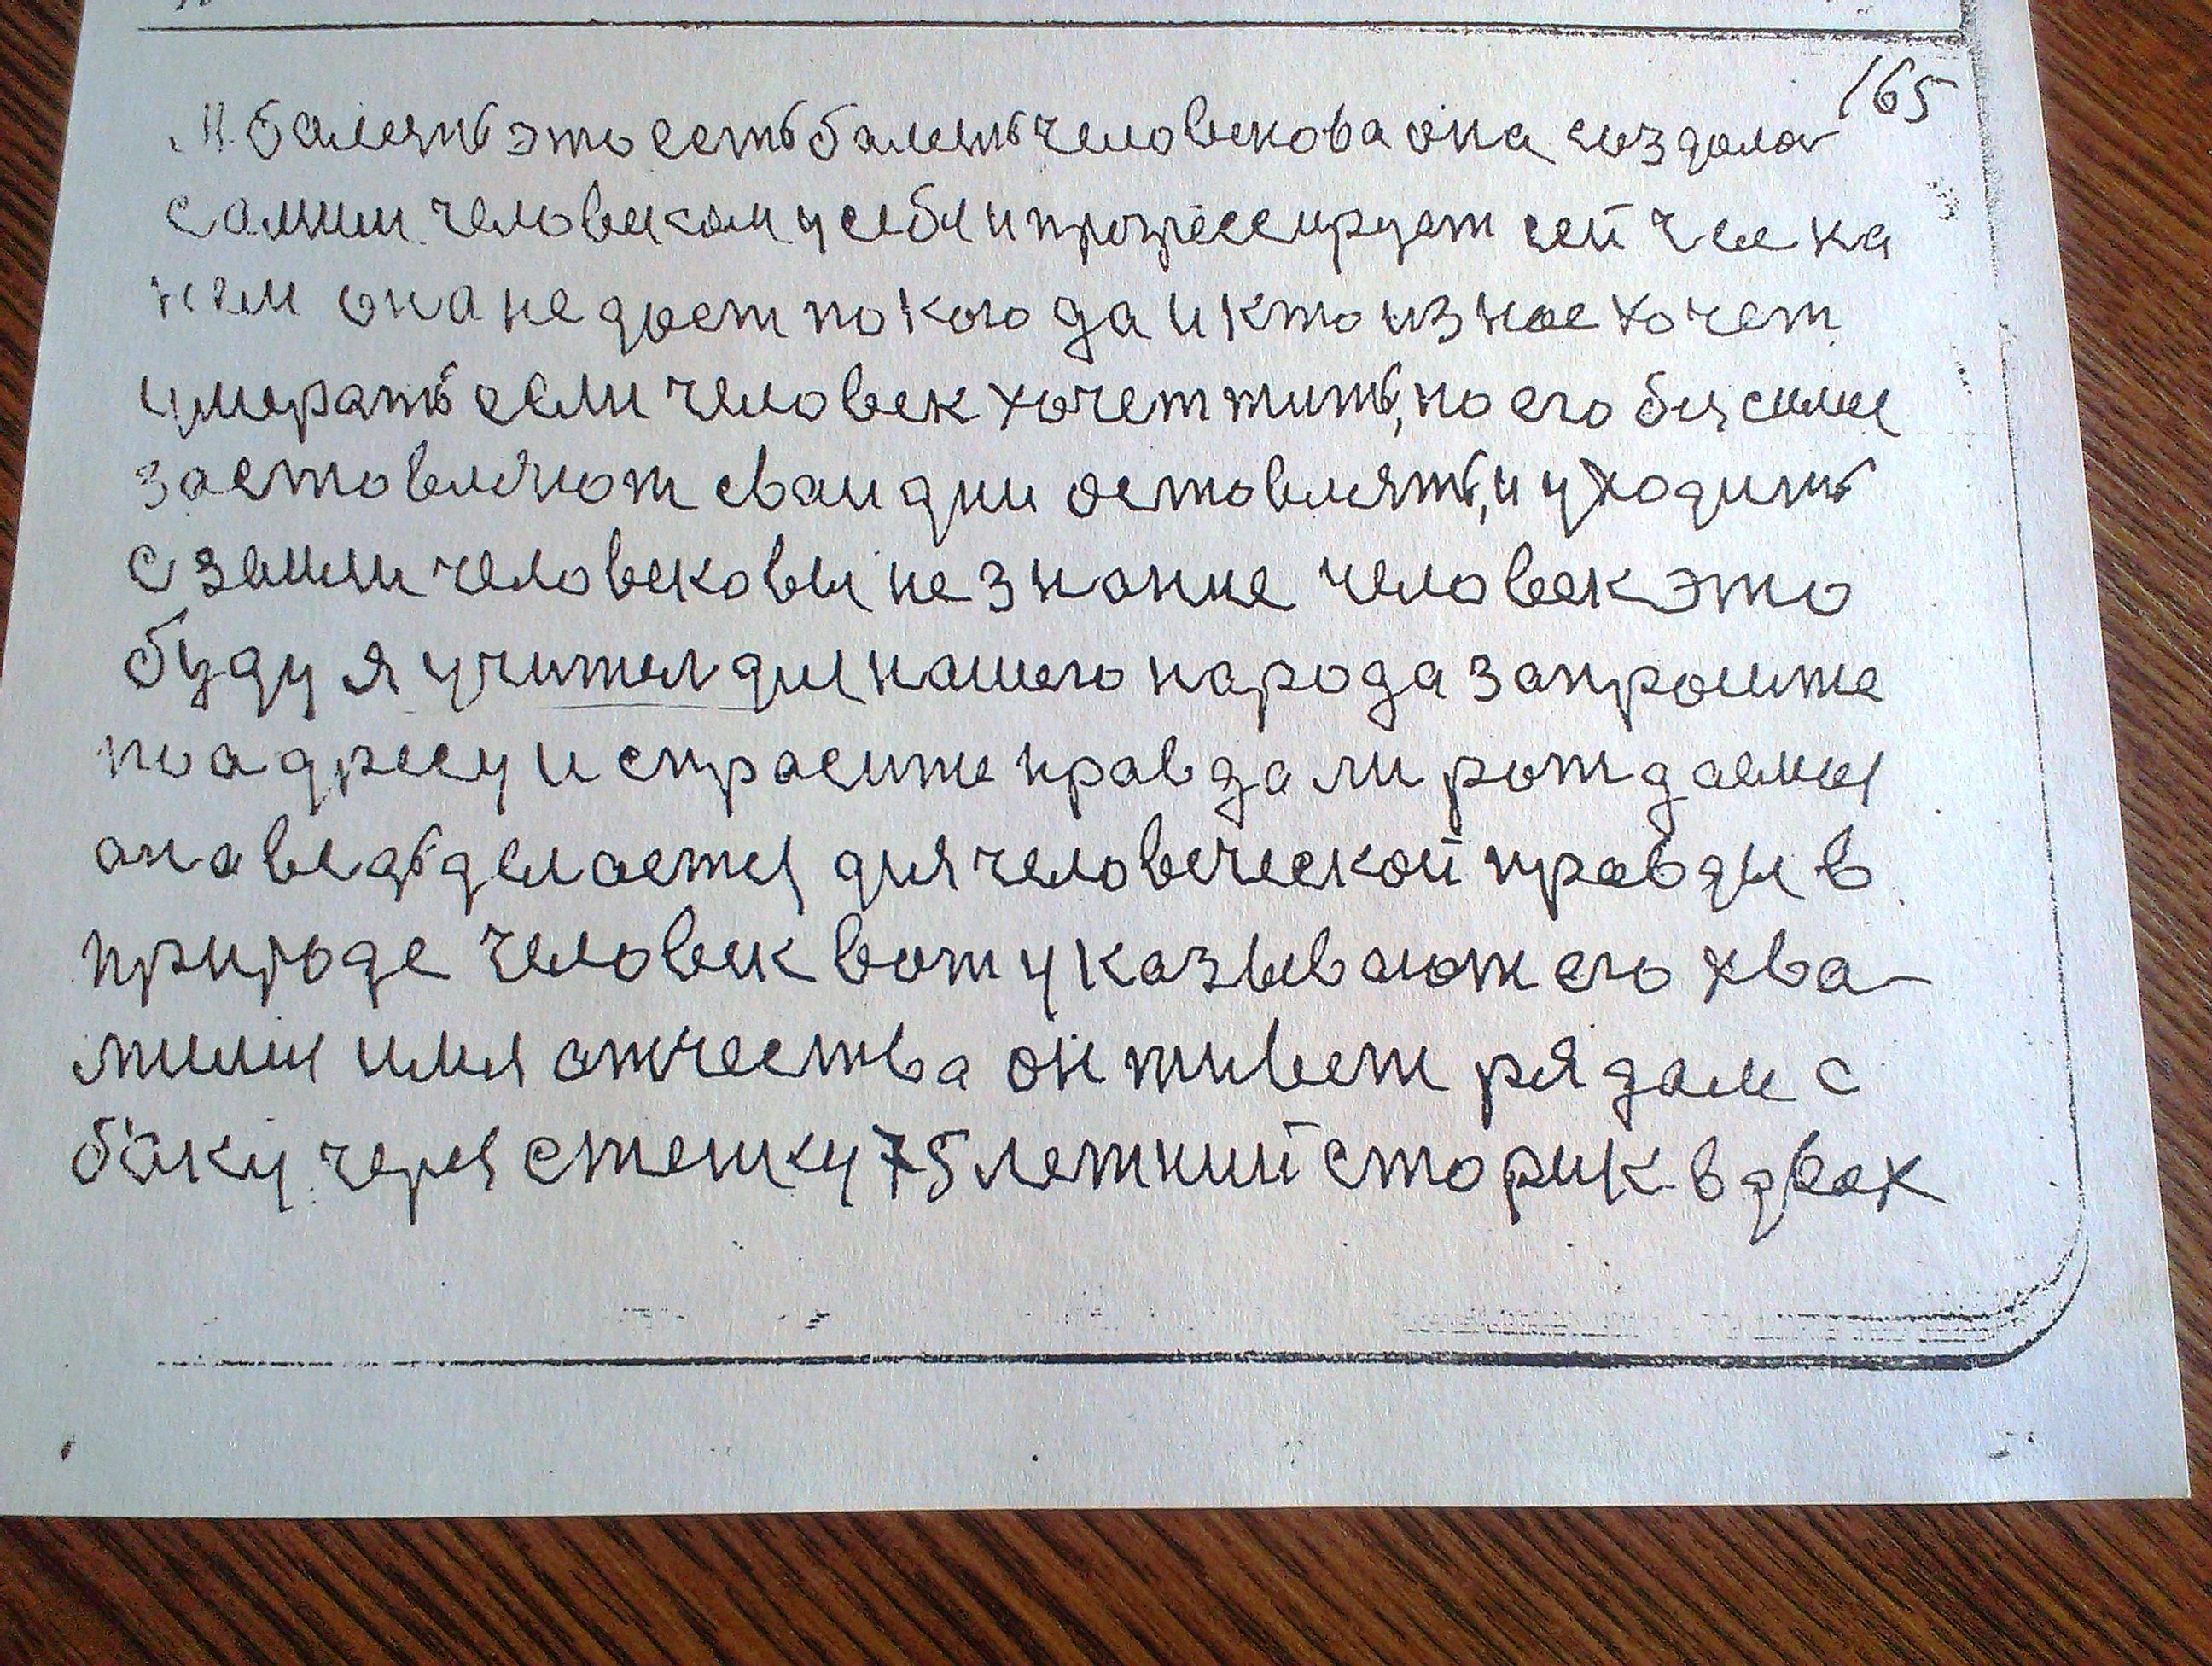 165
И балеть это есть балеть человекова она создала
самим человеком у себя и прогрессирует сей час на
нем она не дает покою да и кто из нас хочет
умерать если человек хочет тить, но его бис силие
заставляют сваи дни оставлять, и уходить
с земли человековы не знание человек это
буду я учитель для нашего народа запросите
по адресу и спрасите правда ли ротдаемыя
она ведь делается для человеческой правды в
природе человек вот указывают его хва-
милия имя атчества он тивет рядам с
баку через стенку 75 летний сторик в двах